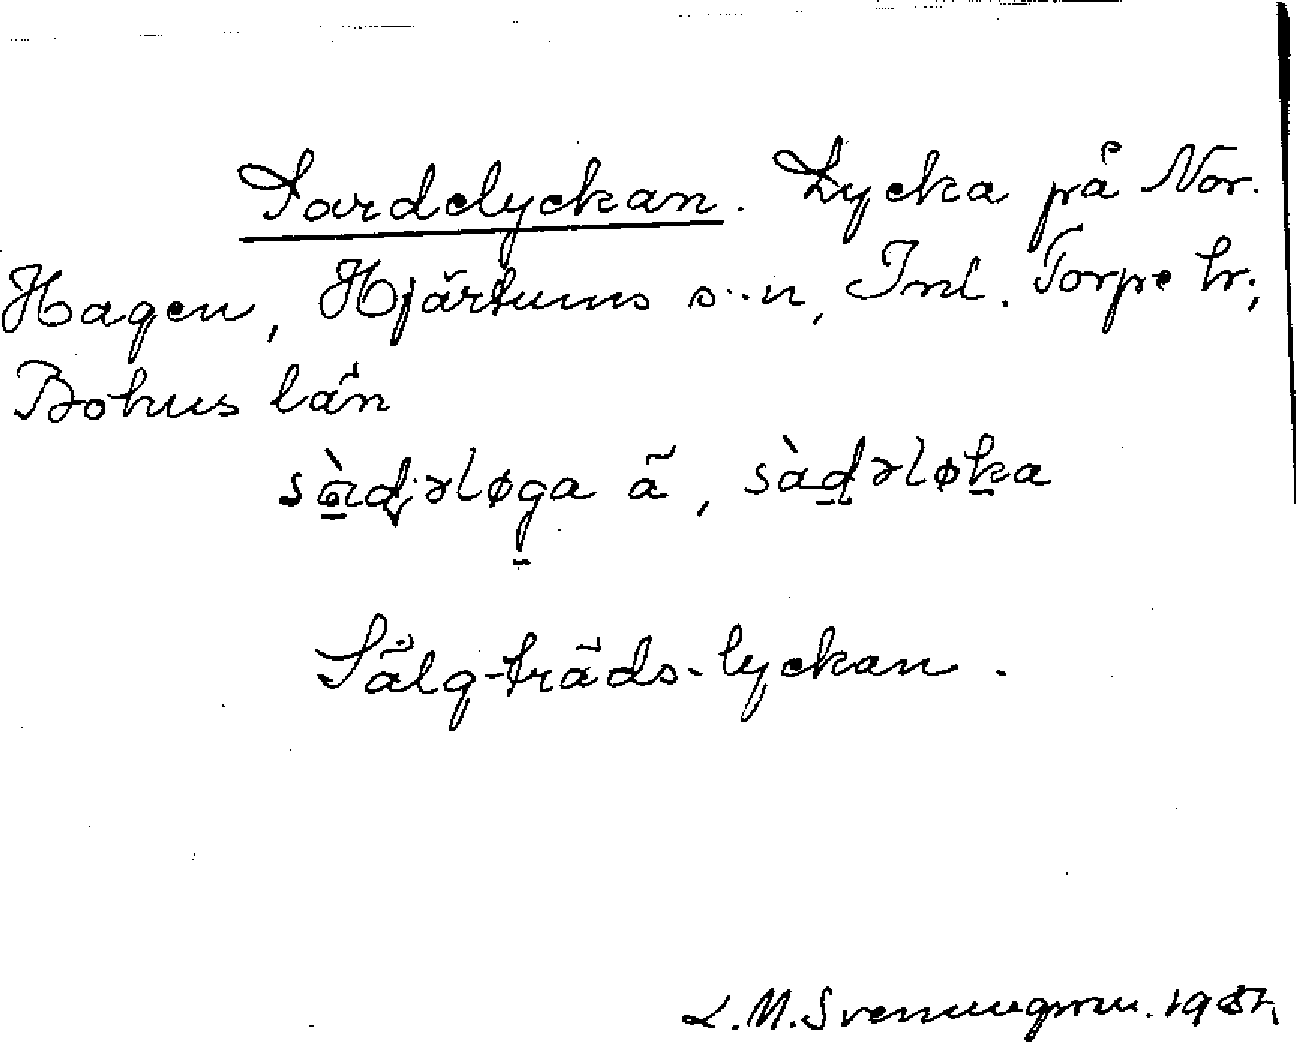 Sardelyckan. Lycka på Nor.
Hagen, Hjärtums s:n, Inl. Torpe hr;
Bohus län
sàdərløga ä, sàdərløka
Sälg-träds-lyckan.
L.M.Svenungsson. 19